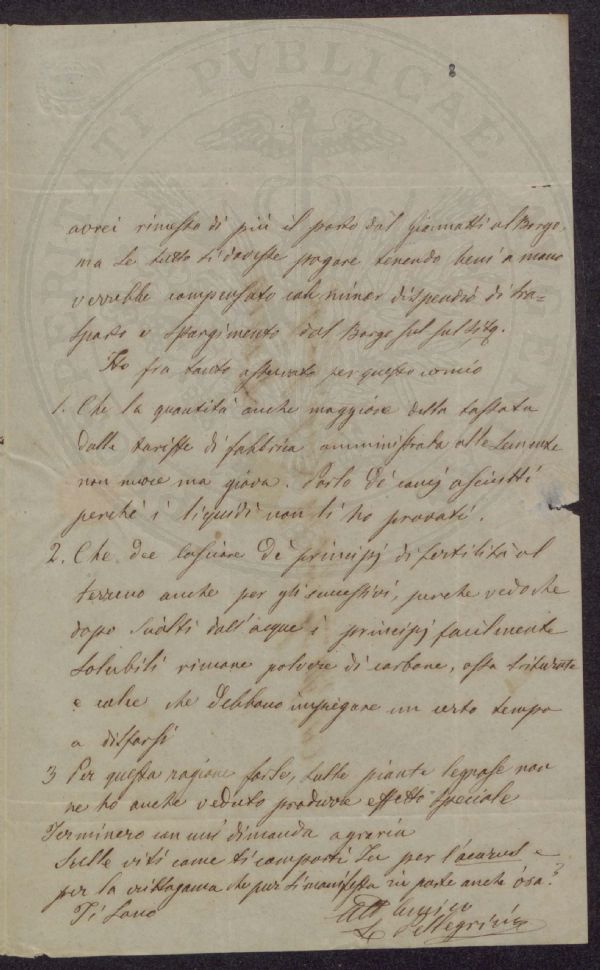 avrei rimesso di più il porto dal Giannatti al Borgo,
ma se tutto si dovesse pagare tenendo beni a mano
verrebbe compensato col minor dispendio di tra=
sporto e spargimento dal Borgo sul
Ho fra tanto osservato per questo concio
1. Che la quantità anche maggiore della tassata
dalle tariffe di fabbrica amministrata alle Semente
non nuoce ma giova. Parlo de' concj asciutti
perché i liquidi non li ho provati.
2. Che dee lasciare de' principj di fertilità al
terreno anche per gli successivi, perche vedo che
dopo sciolti dall'acque i principj facilmente
solubili rimane polvere di carbone, ossa triturate
e calce che debbono impiegare un certo tempo
a disfarsi
3 Per questa ragione forse, sulle piante legnose non
ne ho anche veduto produrre effetto speciale
Terminero con una dimanda agraria
Sulle viti come ti comporti Tu per l'acarus e
per la crittogama che pur si manifesta in parte anche ora?
Ti Sono
Aff Amico
L Pellegrini
PVBLICAE